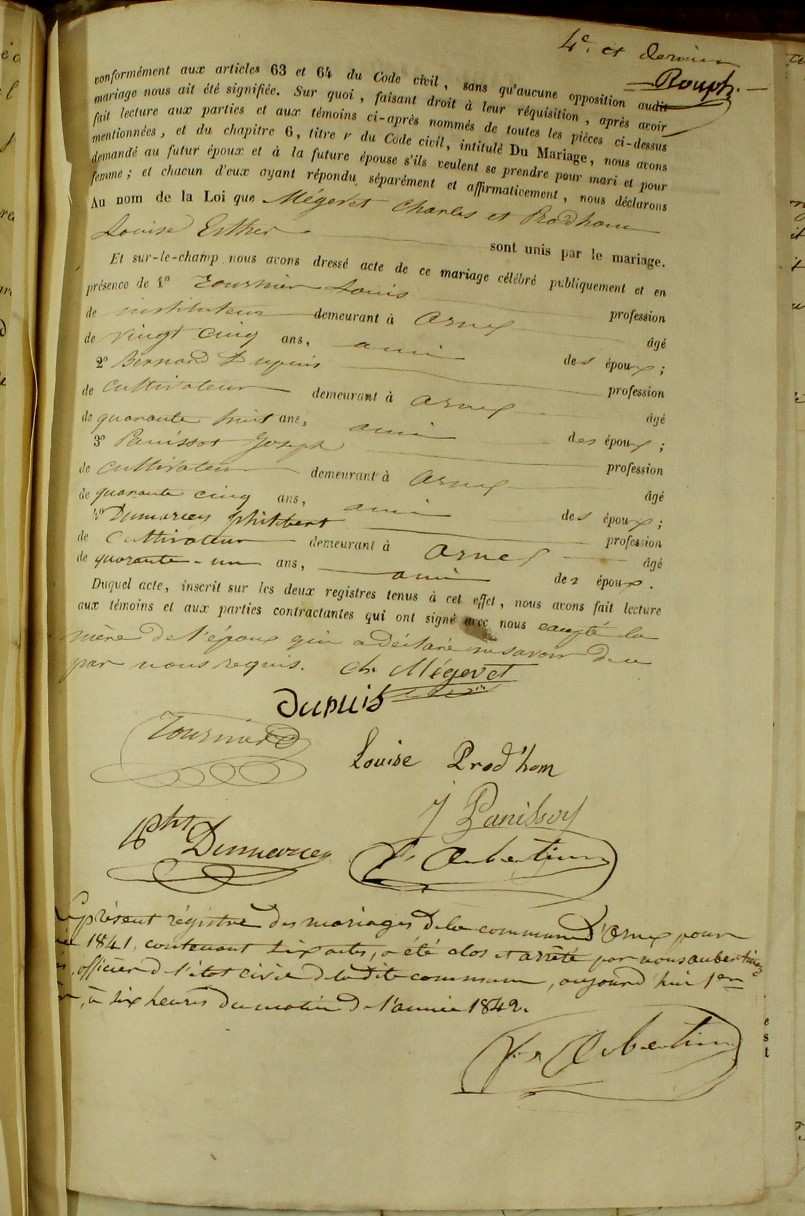 4e. et dernier
Rouph.
conformément aux articles 63 et 64 du Code civil, sans qu'aucune opposition audit
mariage nous ait été signifiée. Sur quoi, faisant droit à leur réquisition, après avoir
fait lecture aux parties et aux témoins ci-après nommés de toutes les pièces ci-dessus
mentionnées, et du chapitre 6, titre v du Code civil, intitulé Du Mariage, nous avons
demandé au futur époux et à la future épouse s'ils veulent se prendre pour mari et pour
femme; et chacun d'eux ayant répondu séparément et affirmativement, nous déclarons
Au nom de la Loi que Mégevet Charles et Prodhom
Louise Esther sont unis par le mariage.
Et sur-le-champ nous avons dressé acte de ce mariage célébré publiquement et en
présence de 1° Tournier Louis profession
de instituteur demeurant à Arnex âgé
de vingt cinq ans, ami des époux;
2° Bernard Dupuis profession
de cultivateur demeurant à Arnex âgé
de quarante huit ans, ami des époux;
3° Panissot Joseph profession
de cultivateur demeurant à Arnex âgé
de quarante cinq ans, ami des époux;
4° Dumarcey philibert profession
de cultivateur demeurant à Arnex âgé
de quarante-un ans, ami des époux.
Duquel acte, inscrit sur les deux registres tenus à cet effet, nous avons fait lecture
aux témoins et aux parties contractantes qui ont signé avec nous excepté la
mère de l'époux qui a déclaré ne savoir de ce
par nous requis. Ch. Mégevet
Dupuis
Tournier
Louise Prod'hom
J Panissot
Pht Dumarcey
Aubertin
présent régistre des mariages de la commune d'Arnex pour
1841, contenant six actes, a été clos et arrêté par nous aubertin
officier de l'état civil de ladite commune, aujourd'hui 1er
à six heures du matin de l'année 1842.
Aubertin